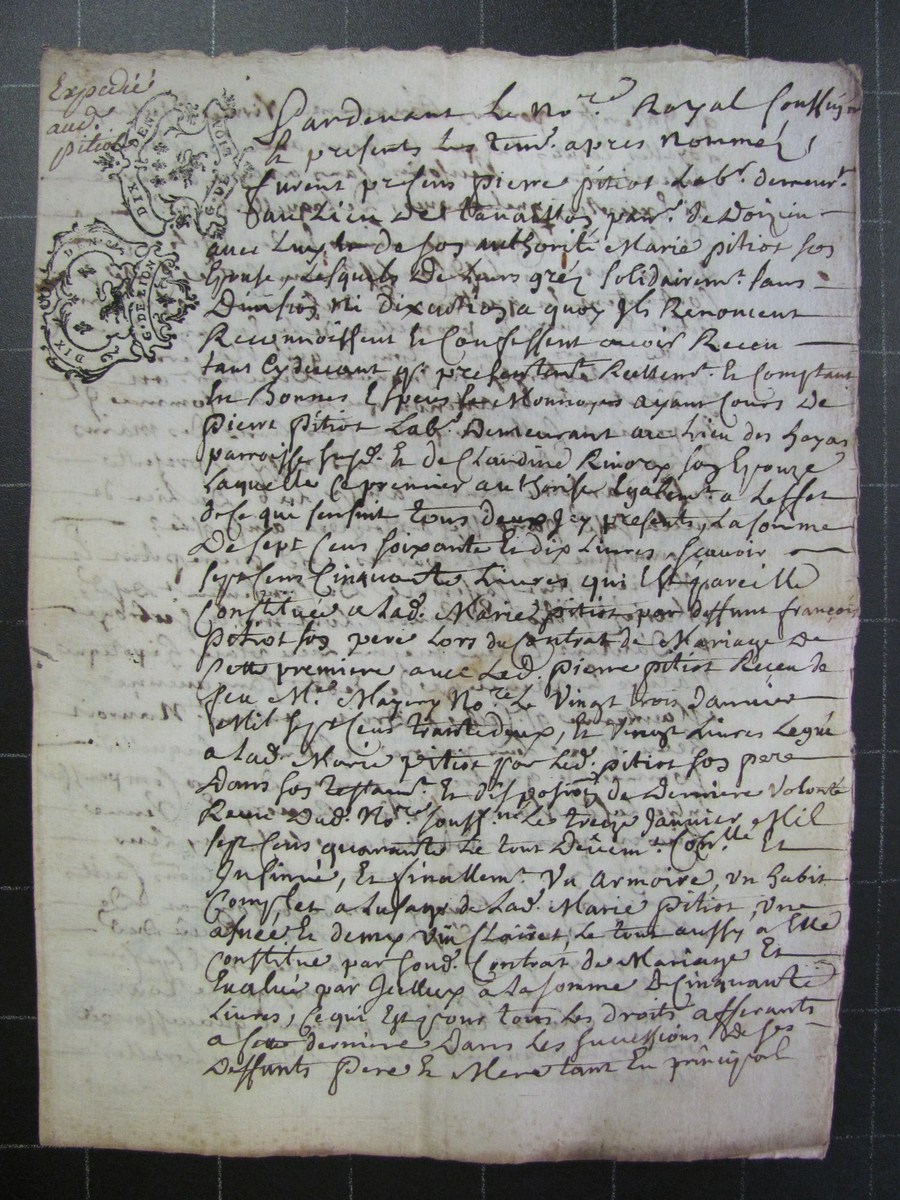 Expedié
aud.
pitiot
DIX DEN.
G. DE LION
DIX DEN.
G. DE LION
Pardevant Le No.re Royal Soussigné
Et presents Les tem. apres Nommez,
furent presens pierre pitiot Lab.r demeur.t
au Lieu de parr.e de Doizieu
avec Luy de son authorité Marie pitiot son
Epouse, Lesquels de Leurs gréz solidairem.t sans
Division Ni dixcution a quoy Ils Renoncent
Reconnoissent Et Confessent avoir Receu
tant Cydevant q. presentem.t Reellem.t Et Comptant
En Bonnes Especes Et Monnoyes ayant Cours de
Pierre Pitiot Lab.r Demeurant au Lieu des hayes
parroisse susd. Et de Claudine son Epouze
Laquelle Ce premier authorise Egalem.t a Leffet
de Ce qui sensuit tous deux Icy presents, La somme
De sept Cens soixante Et dix Livres scavoir
sept Cens Cinquante Livres qui Est pareille
Constituée a Lad. Marie pitiot par deffunt françois
Pitiot son pere Lors du Contrat de Mariage de
Cette premiere avec Led. pierre pitiot Receu de
feu M.e No.re Le Vingt trois Janvier
Mil sept Cens trante deux, Et Vingt Livres Legué
a Lad. Marie pitiot par Led. pitiot son pere
Dans son testam.t Et disposition de Derniere Volonté
Receu Dud. No.re souss.né Le treize Janvier Mil
sept Cens quarante Le tout Deüem.t Con.llé Et
Insinué, Et finallem.t Un armoire, un habit
Complet a Lusage de Lad. Marie pitiot, Une
asnée Et demy Vin Clairet, Le tout aussy a Elle
Constitué par sond. Contrat de Mariage Et
Evalué par Icelluy a La somme de Cinquante
Livres, Ce qui Est pour tous Les droits afferants
a Cette derniere Dans Les successions de ses
Deffunts Pere Et Mere tant En principal